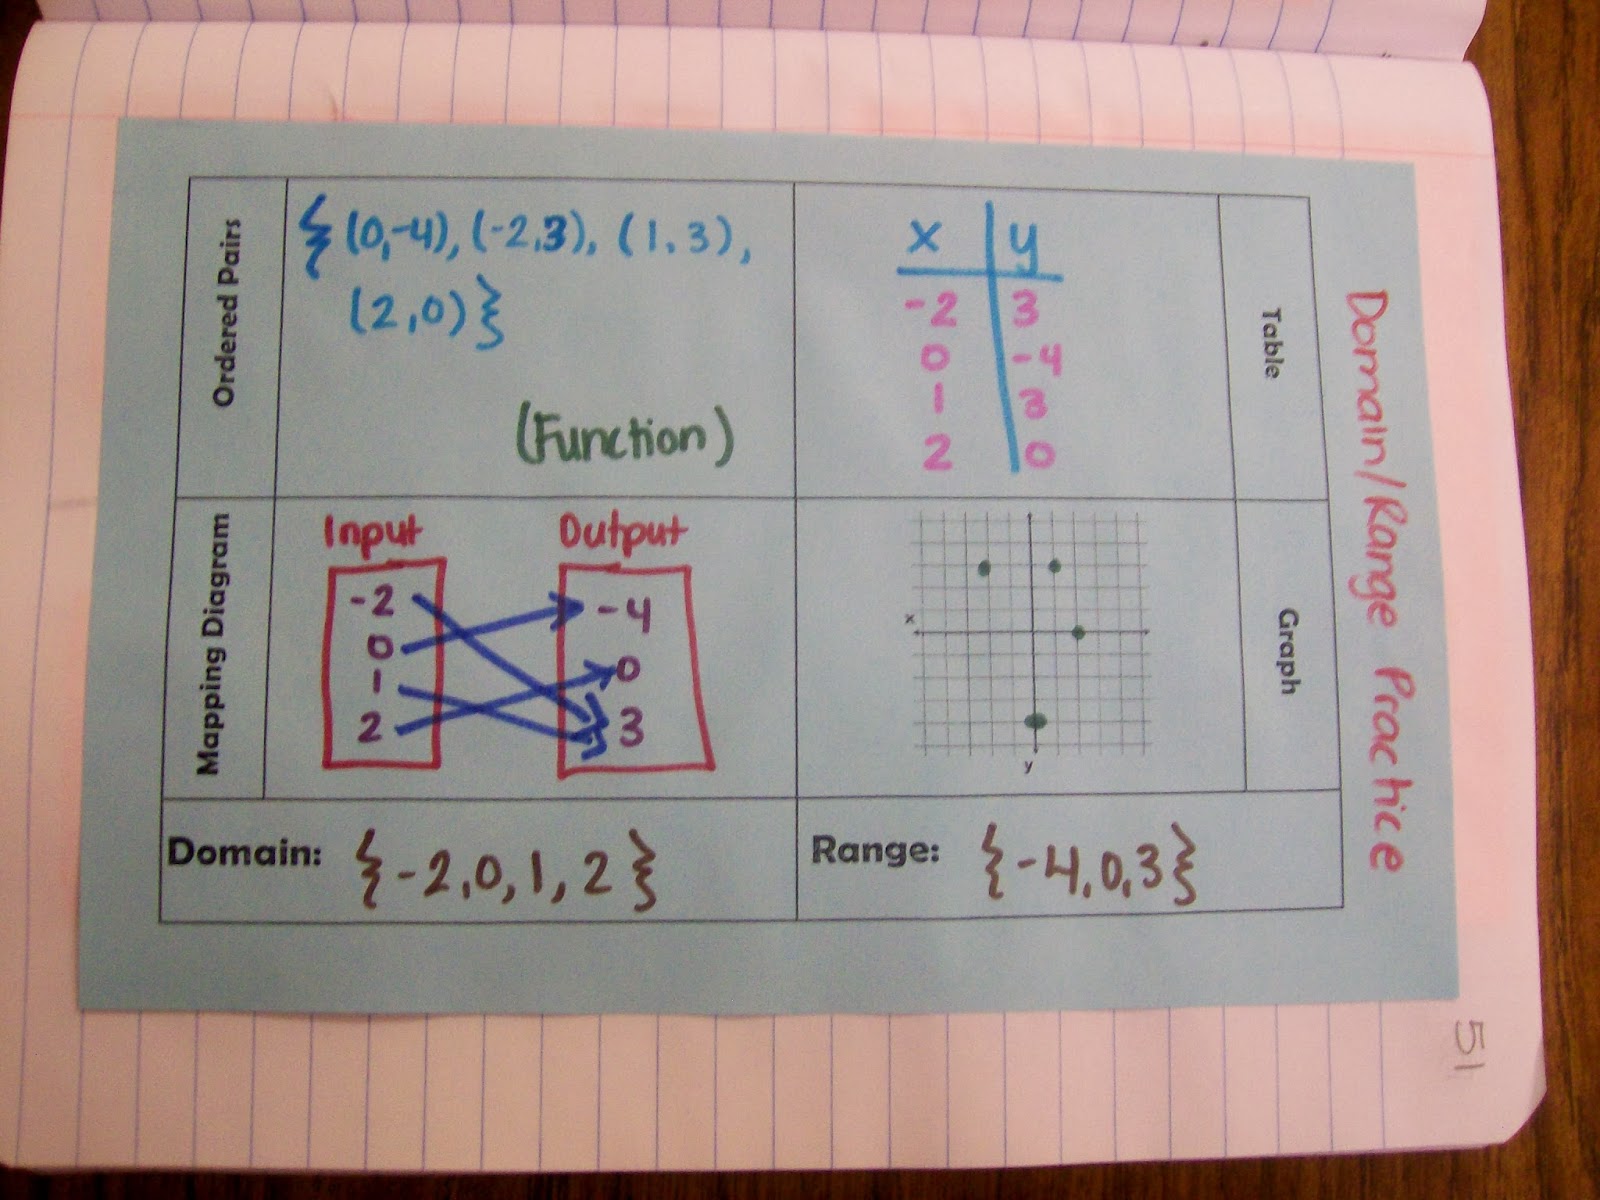 Domain/Range Practice
Ordered Pairs
{(0,-4), (-2,3), (1,3),
(2,0)}
(Function)
Table
x y
-2 3
0 -4
1 3
2 0
Mapping Diagram
Input Output
-2 -4
0 0
1 3
2
Graph
x
y
Domain: {-2,0,1,2}
Range: {-4,0,3}
51